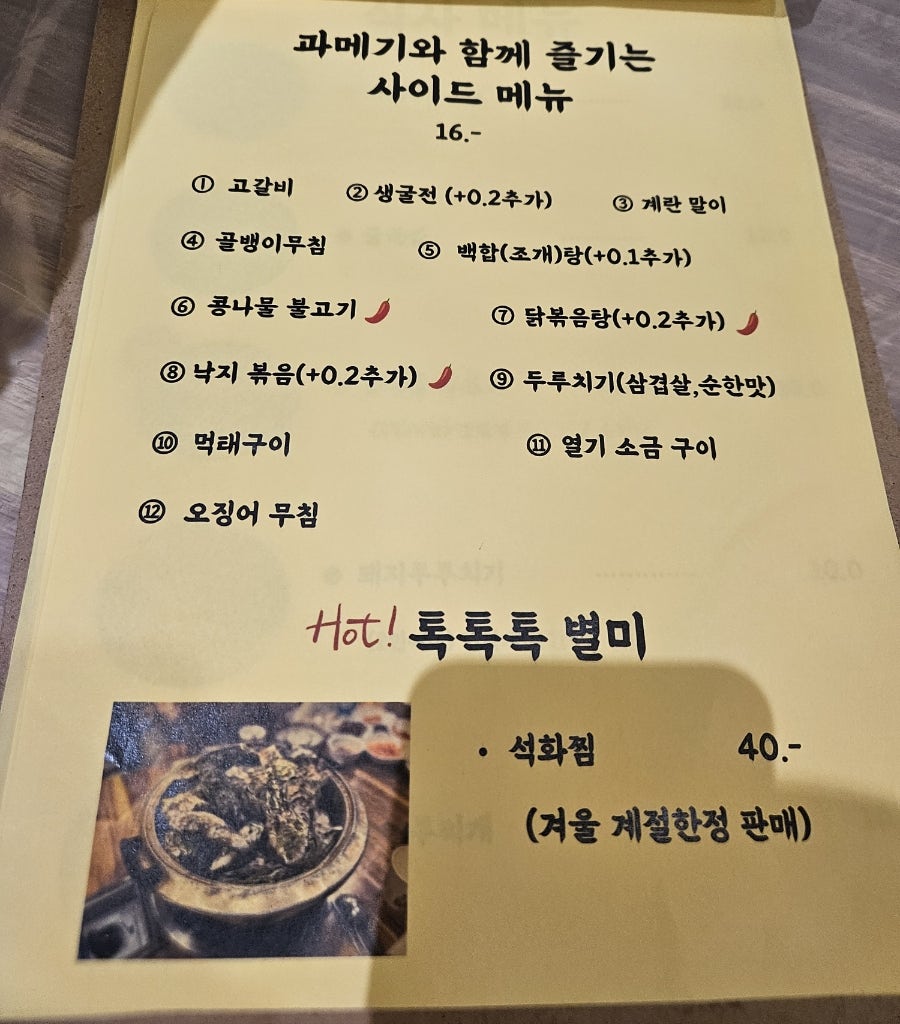 과메기와 함께 즐기는
사이드 메뉴
16.-
① 고갈비 ② 생굴전 (+0.2추가) ③ 계란 말이
④ 골뱅이무침 ⑤ 백합(조개)탕(+0.1추가)
⑥ 콩나물 불고기 ⑦ 닭볶음탕(+0.2추가)
⑧ 낙지 볶음(+0.2추가) ⑨ 두루치기(삼겹살,순한맛)
⑩ 먹태구이 ⑪ 열기 소금 구이
⑫ 오징어 무침
Hot! 톡톡톡 별미
• 석화찜 40.-
(겨울 계절한정 판매)